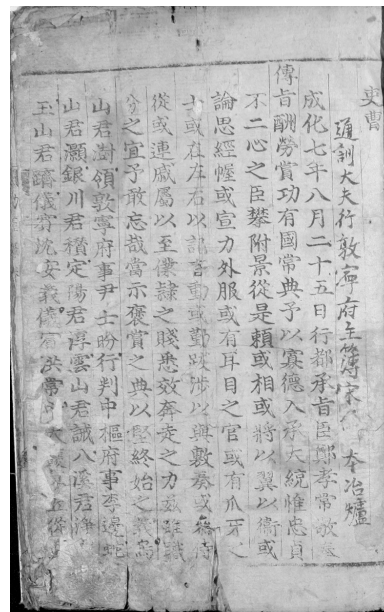 吏曹
通訓大夫行敦寧府主簿宋
成化七年八月二十五日行都承旨臣鄭孝常敬奉
傳旨酬勞賞功有國常典予以寡德入承大統惟忠貞
不二心之臣攀附景從是賴或相或將以翼以衛或
論思經幄或宣力外服或有耳目之官或有爪牙之
士或在左右以記言動或勤跋涉以與敷奏或為侍
從或連戚屬以至僕隸之賤悉效奔走之力玆雖職
分之宜予敢忘哉當示褒賞之典以堅終始之義
山君澍領敦寧府事尹士昐行判中樞府事李邊
山君灝銀川君穳定陽君淳雲山君誡八溪君淨
玉山君躋儀賓沈安義儀賓洪常